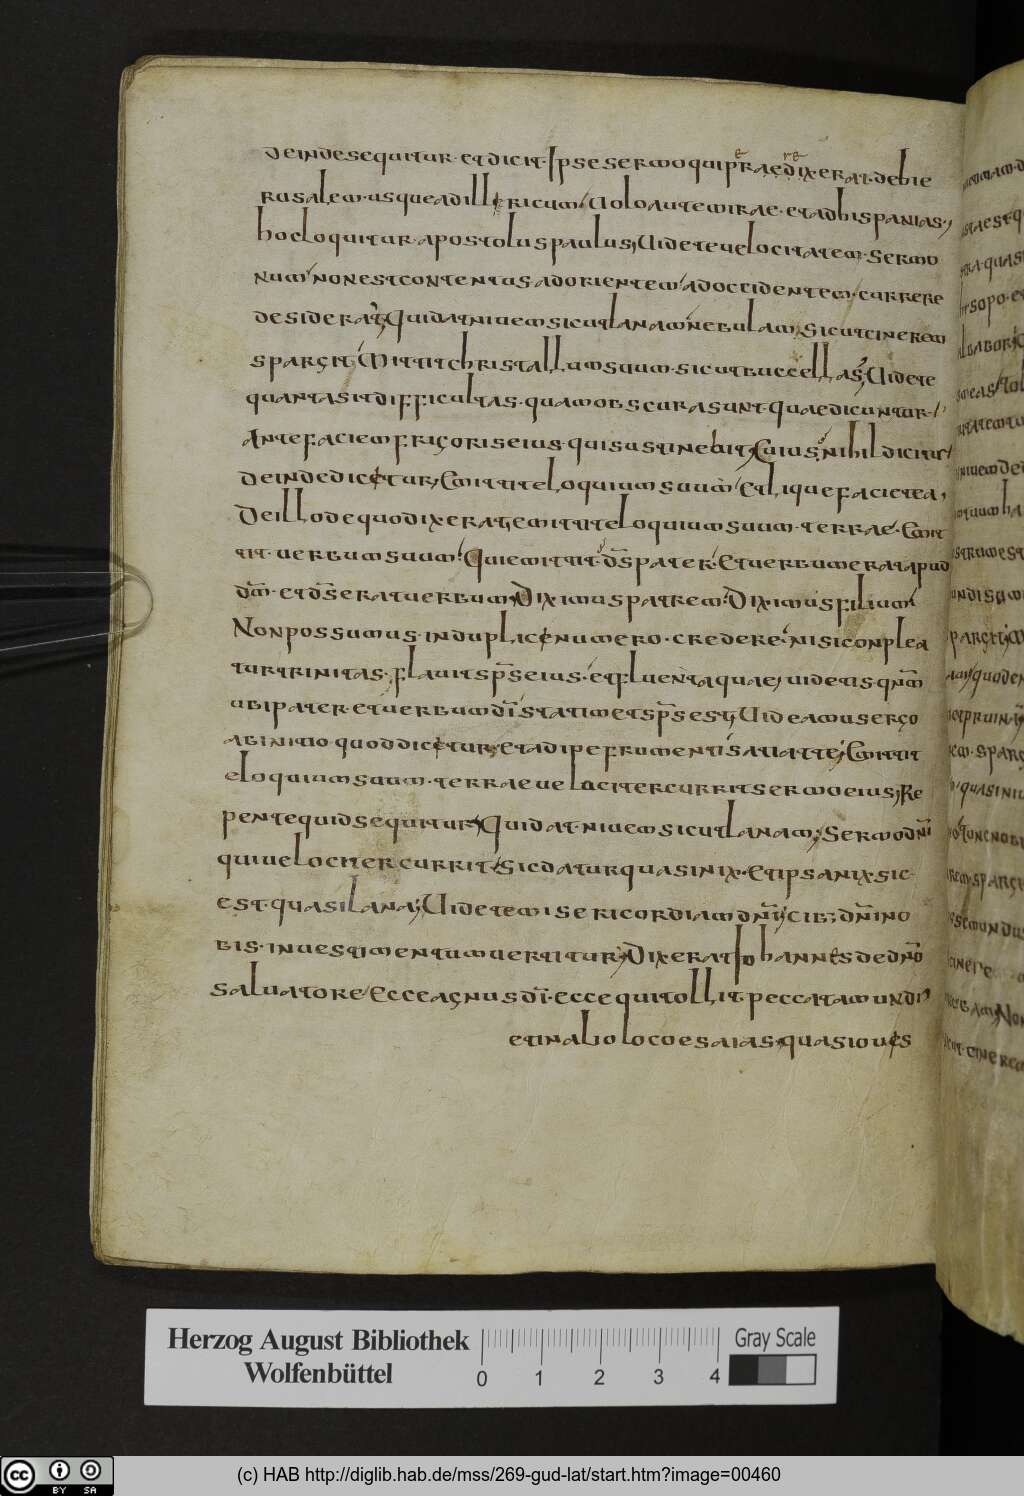 deindesequitur· etdicit· Ipsesermoquipraedixerat· dehie
rusalem· usqueadillericum· Uoloautemirae· etadhispanias;
hocloquitur· apostoluspaulus; Uideteuelocitatem· sermo
num· nonestcontentus adorientem· adoccidentem· currere
desiderat; Quidatniuemsicutlanam· nebulam· sicutcinerem
spargit; Mittitchristallumsuum· sicutbuccellas; Uidete
quantasitdifficultas· quamobscurasunt· quaedicuntur·
Antefaciemfrigoriseius· quissustinebit; Cuius· nihildicitur
deindedicetur; Emittiteloquiumsuum· Etliquefacietea;
Deillodequodixerat· emittiteloquiumsuum· terrae· Emit
tit· uerbumsuum· Quiemittit· ds̄pater· Etuerbumerat apud
dm̄· etds̄eratuerbum· Diximuspatrem· Diximusfilium·
Nonpossumus· induplicenumero· credere· nisiconplea
turtrinitas· flauitsps̄eius· etfluentaquae; uidetis· qnm̄
ubipater· etuerbumdī· statimetsps̄est; Uideamusergo
abinitio· quoddicetur; Etadipefrumentisatiatte; Emittit
eloquiumsuum· terrae uelocitercurritsermoeius; Re
pentequidsequitur; Quidat· niuemsicutlanam; Sermodnī
quiuelociter currit· sicdaturquasinix· Etipsanix· sic
est· quasilana; Uidetemisericordiamdnī; Cib; dnīno
bis· inuestimentumuertitur; Dixeratiohannesdednō
saluatore· Ecceagnusdī· eccequitollit· peccatamundi;
etinaliolocoesaias· quasioues
Herzog August Bibliothek
Wolfenbüttel
0 1 2 3 4
Gray Scale
cc BY SA
(c) HAB http://diglib.hab.de/mss/269-gud-lat/start.htm?image=00460